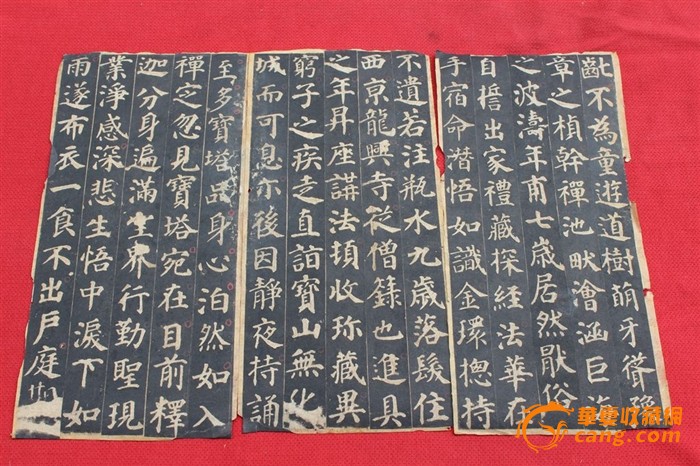 齓不為童遊道樹萌牙聳豫
章之楨幹禪池畎澮涵巨海
之波濤年甫七歲居然厭俗
自誓出家禮藏探經法華在
手宿命潛悟如識金環揔持
不遺若注瓶水九歲落髮住
西京龍興寺從僧籙也進具
之年昇座講法頓收珍藏異
窮子之疾走直詣寶山無化
城而可息尒後因靜夜持誦
至多寶塔品身心泊然如入
禪定忽見寶塔宛在目前釋
迦分身遍滿空界行勤聖現
業淨感深悲生悟中淚下如
雨遂布衣一食不出戶庭
華夏收藏网
cang.com